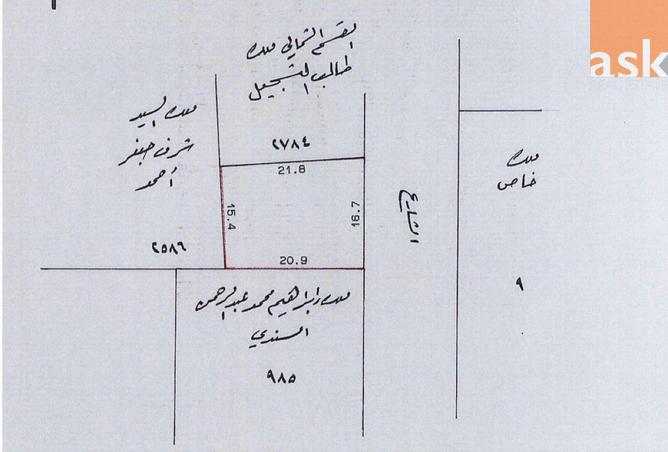 ask
القسم الشمالي ملك
طالب التسجيل
٢٧٨٤
21.8
ملك السيد
شرف جعفر
أحمد
٢٥٨٦
15.4
16.7
20.9
الشارع
ملك
خاص
٩
ملك ابراهيم محمد عبدالرحمن
السندي
٩٨٥